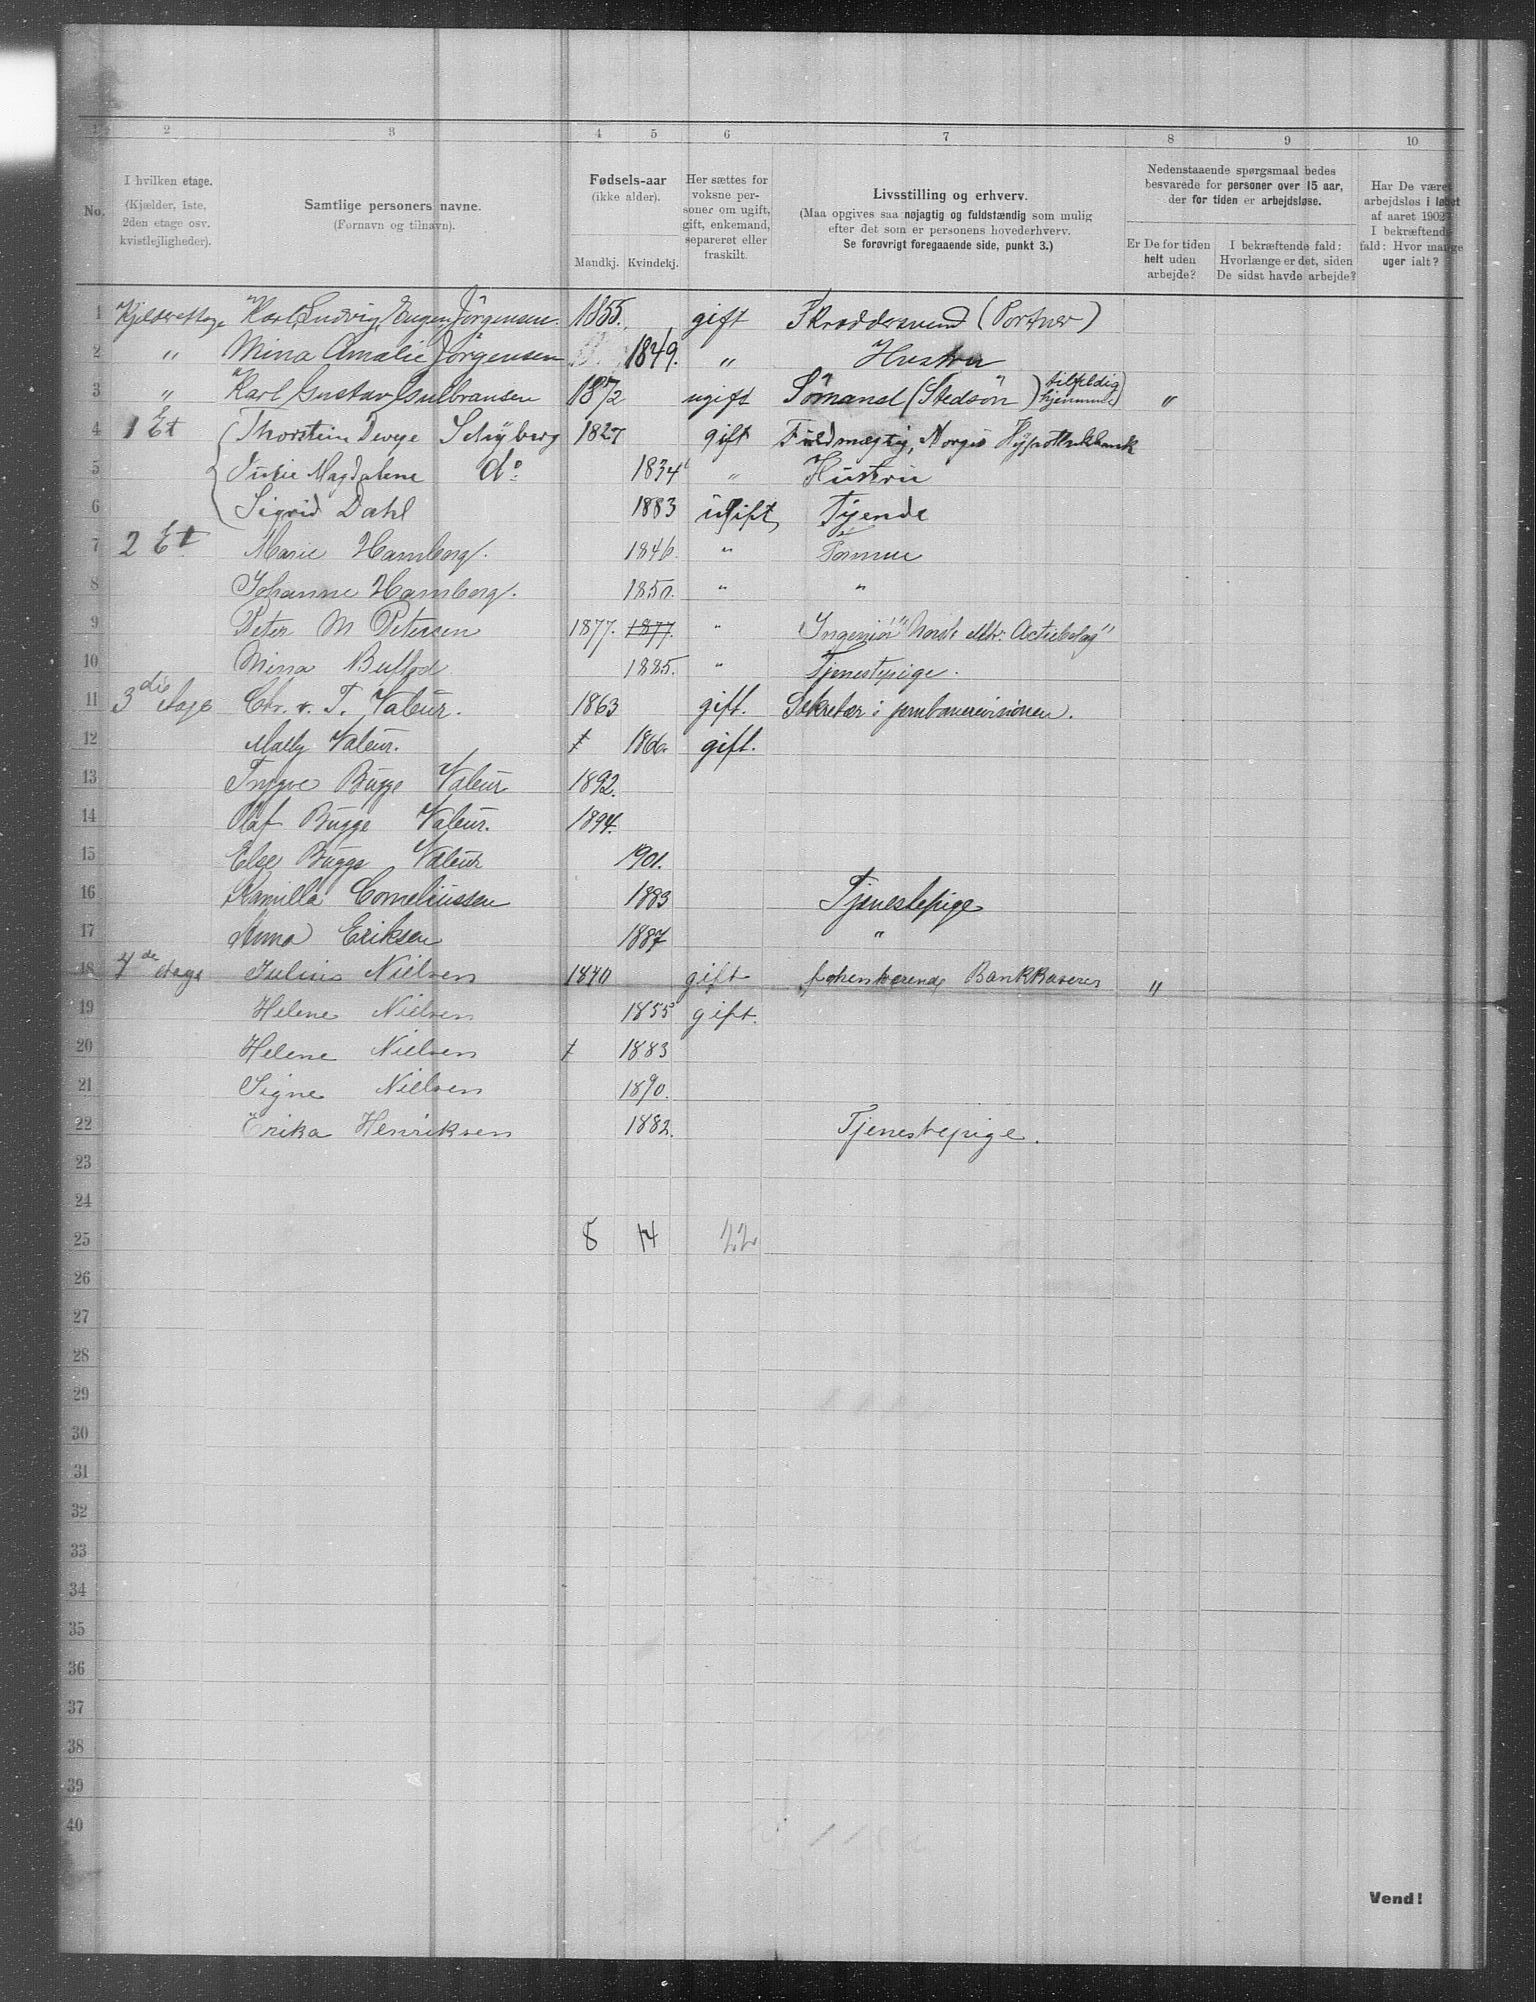 1 2 3 4 5 6 7 8 9 10
No.
I hvilken etage.
(Kjælder, 1ste,
2den etage osv.
kvistlejligheder).
Samtlige personers navne.
(Fornavn og tilnavn).
Fødsels-aar
(ikke alder).
Mandkj. Kvindekj.
Her sættes for
voksne per-
soner om ugift,
gift, enkemand,
separeret eller
fraskilt.
Livsstilling og erhverv.
(Maa opgives saa nøjagtig og fuldstændig som mulig
efter det som er personens hovederhverv.
Se forøvrigt foregaaende side, punkt 3.)
Nedenstaaende spørgsmaal bedes
besvarede for personer over 15 aar,
der for tiden er arbejdsløse.
Er De for tiden
helt uden
arbejde?
I bekræftende fald:
Hvorlænge er det, siden
De sidst havde arbejde?
Har De været
arbejdsløs i løbet
af aaret 1902?
I bekræftende
fald: Hvor mange
uger ialt?
1 Kjelderetage Karl Ludvig Eugen Jörgensen. 1855. gift Skräddersvend (Portner)
2 " Mina Amalie Jörgensen 1849. " Hustru
3 " Karl Gustav Gulbransen 1872 ugift Sömand (Stedsön) tilfeldig hjemme "
4 1 Et Thorstein Dewege Schyberg 1827 gift Fuldmægtig, Norges Hypothekbank
5 Julie Magdalene do 1834 " Hustru
6 Sigrid Dahl 1883 ugift Tjende
7 2 Et Marie Hamborg. 1846. "
8 Johanne Hamborg. 1850. " "
9 Peter M Petersen 1877. 1877. " Ingeniör "Norsk elktr. Actiebolag"
10 Mina 1885. " Tjenestepige.
11 3die Etage Chr. v. T. Valeur. 1863 gift. Sekretær i jernbanerevisionen.
12 Mally Valeur. 1860. gift.
13 Trygve Bugge Valeur 1892.
14 Olaf Bugge Valeur. 1894.
15 Else Bugge Valeur 1901.
16 Kamilla Corneliussen 1883 Tjenestepige
17 Anna Eriksen 1887 "
18 4de etage Julius Nielsen 1840 gift BankKaserer "
19 Helene Nielsen 1855 gift.
20 Helene Nielsen 1883
21 Signe Nielsen 1890.
22 Erika Henriksen 1882. Tjenestepige.
23
24
25 8 14 22
26
27
28
29
30
31
32
33
34
35
36
37
38
39
40
Vend!